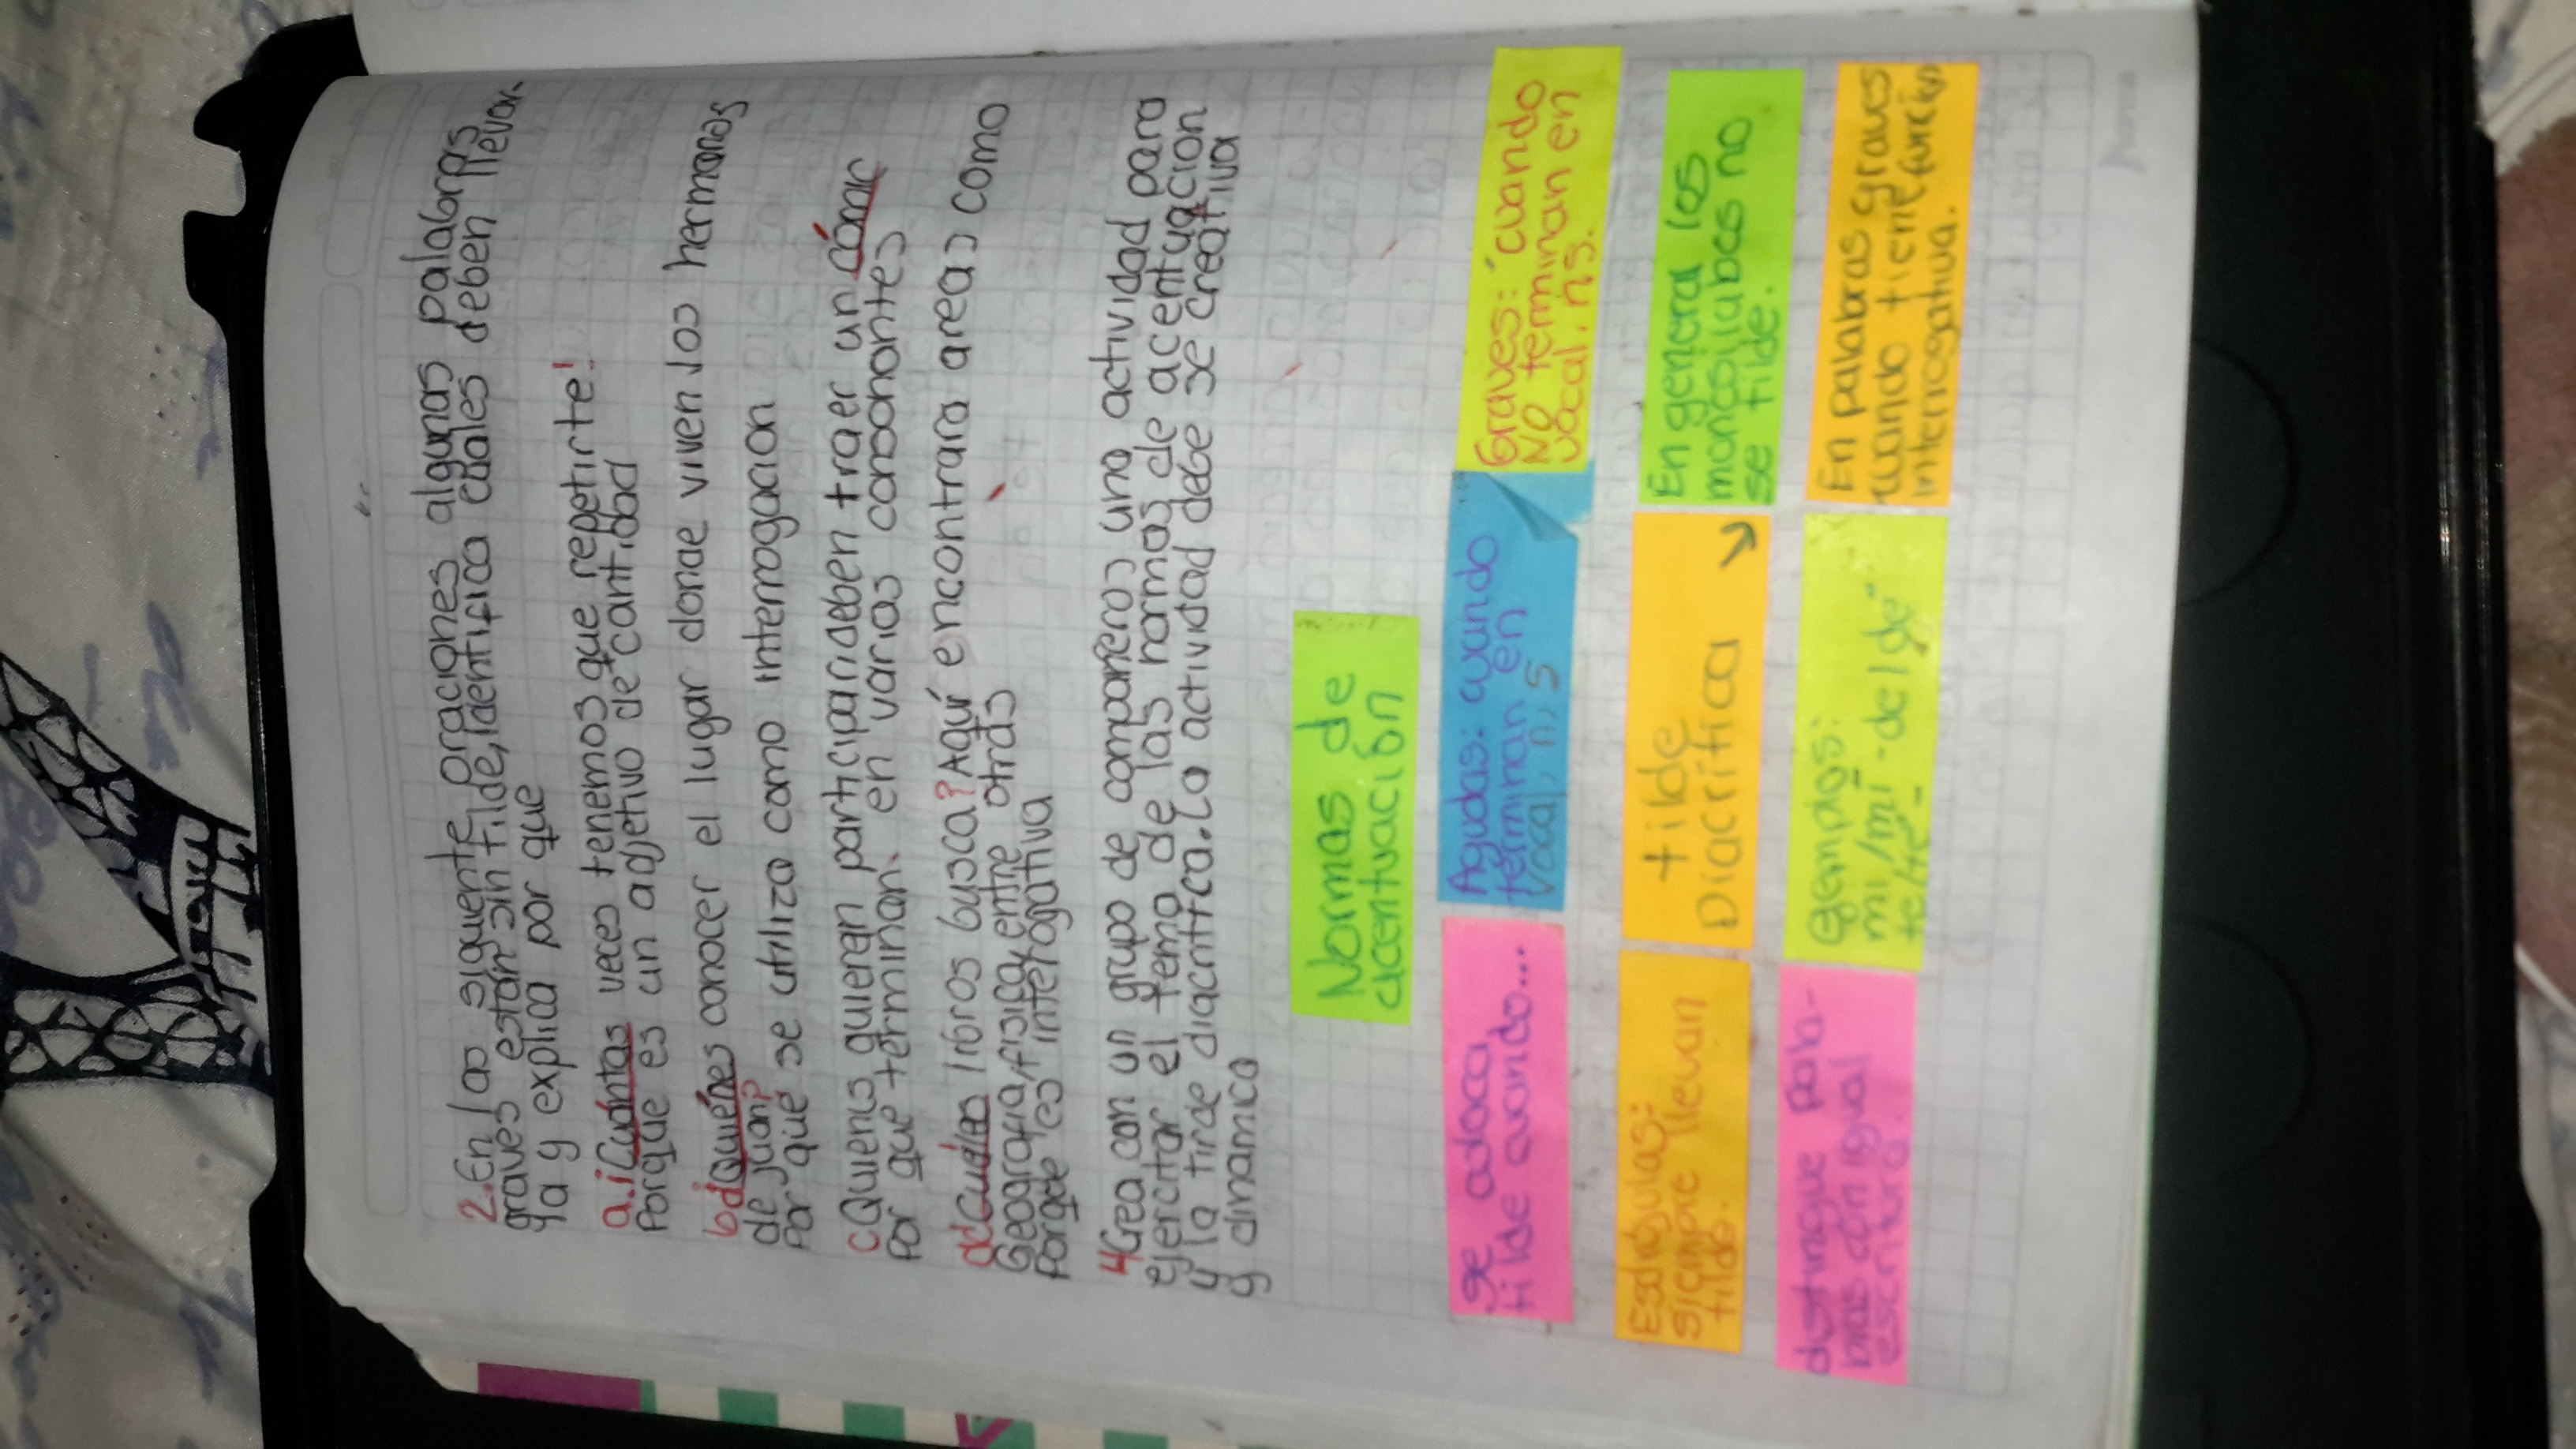 2. En las siguiente oraciones algunas palabras
graves están sin tilde, Identifica cuales deben llevar
la y explica por que
a. ¡Cuántas veces tenemos que repetirte!
Porque es un adjetivo de cantidad
b ¿Quiénes conocer el lugar donde viven los hermanos
de juan?
Por que se utiliza como interrogacion
c Quienes quieran participar deben traer un cómic
Por que terminan en varias consonantes
d ¿Cuáles libros busca? Aquí encontrara areas como
Geografia, fisica, entre otras
Porque es interrogativa
4 Crea con un grupo de compañeros una actividad para
ejercitar el tema de las normas de acentuacion
y la tilde diacritica. La actividad debe se creativa
y dinamica
Normas de
acentuación
se adoca
tilde cuando...
Agudas: cuando
terminan en
vocal, n, s
Graves: cuando
NO terminan en
vocal, n s.
Esdrúgulas:
siempre llevan
tilde.
tilde
Diacrítica
En general los
monosilabos no
se tilde.
distingue pala-
bras con igual
escritura.
Ejemplos:
mi / mí - de / dé
te / té -
En palabras graves
cuando tiene función
interrogativa.
Norma